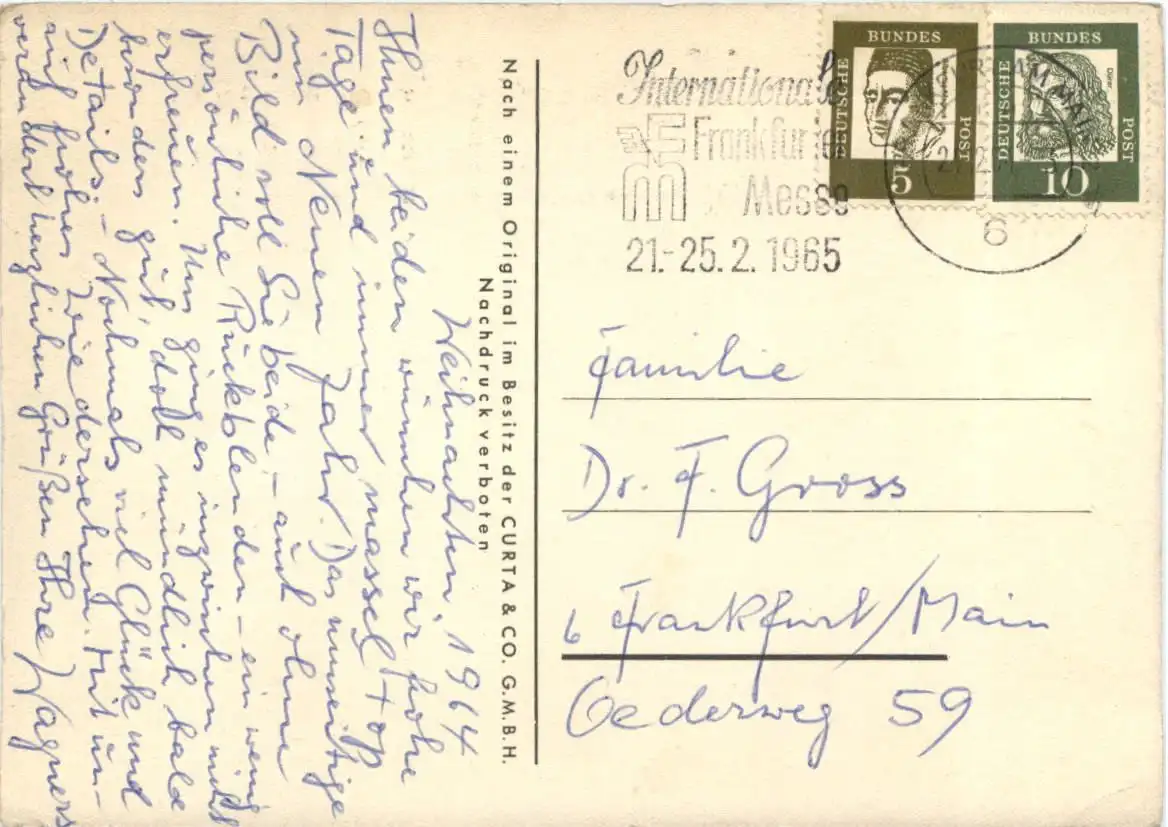 Weihnachten, 1964
Ihnen beiden wünschen wir frohe
Tage und immer massel + op
im Neuen Jahr. Das umseitige
Bild soll Sie beide, – auch ohne
persönliche Rückblenden – ein wenig
erfreuen. Uns ging es inzwischen nicht
besonders gut, doch mündlich bald
Details. – Nochmals viel Glück und
auf frohes Wiedersehen. Mit un-
verändert herzlichen Grüßen Ihre Wagners
Nach einem Original im Besitz der CURTA & CO. G.M.B.H.
Nachdruck verboten
Internationale
Frankfurter
Messe
21.-25.2.1965
BUNDES
DEUTSCHE
POST
5
BUNDES
DEUTSCHE
Dürer
POST
10
6
Familie
Dr. F. Gross
6 Frankfurt/Main
Oederweg 59